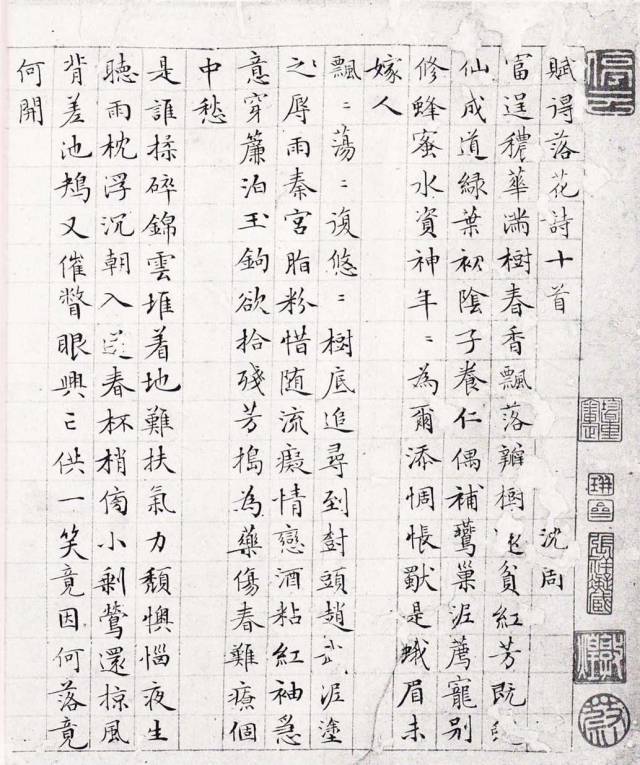 賦得落花詩十首 沈周
富逞穠華滿樹春香飄落瓣樹貧紅芳既
仙成道綠葉初陰子養仁偶補鸎巢泥薦寵別
修蜂蜜水資神年〻為爾添惆悵獃是蛾眉未
嫁人
飄〻蕩〻復悠〻樹底追尋到樹頭趙武泥塗
之辱雨秦宮脂粉惜隨流癡情戀酒粘紅袖急
意穿簾泊玉鉤欲拾殘芳搗為藥傷春難療個
中愁
是誰揉碎錦雲堆着地難扶氣力頹懊惱夜生
聽雨枕浮沉朝入送春杯梢傍小剩鶯還掠風
背差池鳩又催瞥眼興亡供一笑竟因何落竟
何開